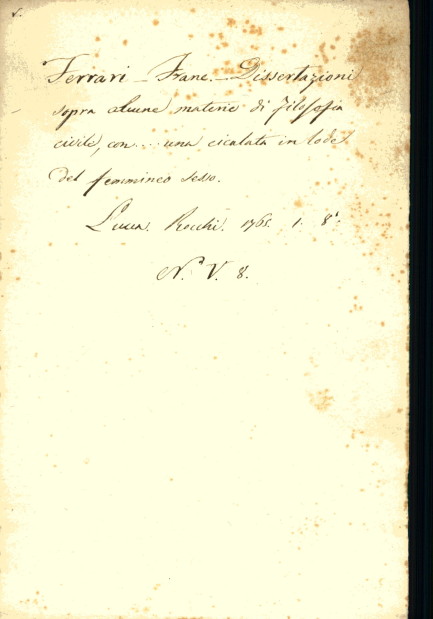 Ferrari - Franc. - Dissertazioni
sopra alcune materie di filosofia
civile, con una cicalata in lode
del femmineo sesso.
Lucca. Rocchi. 1765. 1. 8°
N. V. 8.